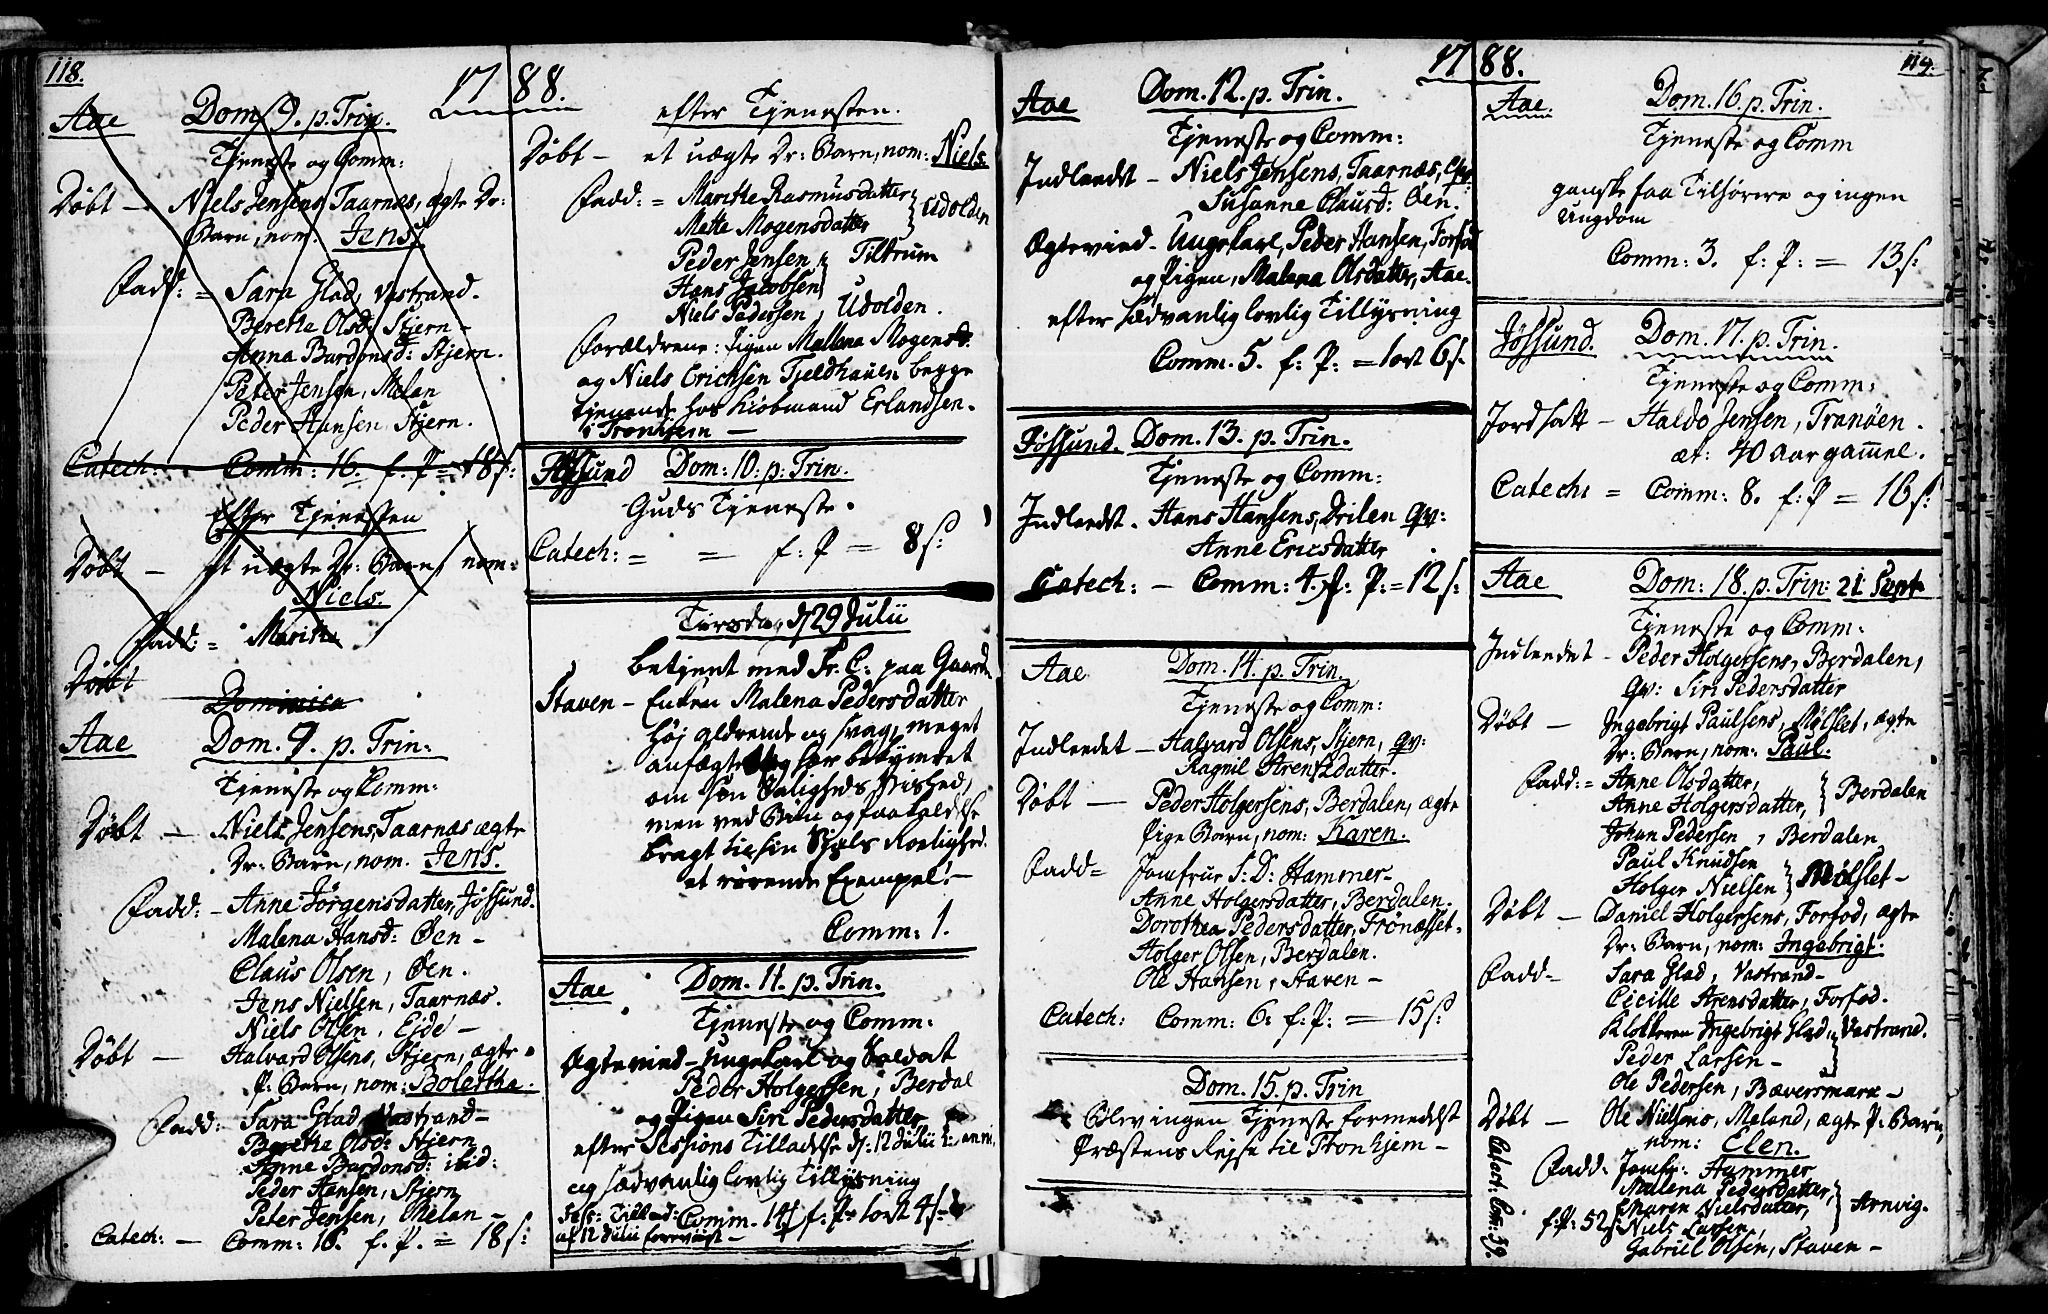 118.
1788.
Aae Dom. 9. p. Trin.
Tjeneste og Comm:
Døbt — Niels Jensens, Taarnæs, ægte Dr:
Barn, nom: Jens.
Fadd: = Sara Glad, Vastrand.
Beretha Olsd: Stjern —
Anna Bardonsd: Stjern.
Peter Jensen, Melan
Peder Hansen, Stjern.
Catech: Comm: 16. f. P = 18 s:
Efter Tjenesten
Døbt — et uægte Dr: Barn, nom:
Niels.
Fadd: = Maritha
Døbt
Dominica
Aae Dom. 9. p. Trin:
Tjeneste og Comm:
Døbt — Niels Jensens, Taarnæs ægte
Dr: Barn, nom. Jens.
Fadd: — Anne Jørgensdatter, Jössund.
Malena Hansd: Øen —
Claus Olsen, Øen.
Jens Nielsen, Taarnæs.
Niels Olsen, Ejde —
Døbt — Halvard Olsens, Stjern, ægte
P: Barn, nom: Boletha.
Fadd: Sara Glad Vastrand —
Beretha Olsd: Stjern
Anne Bardonsd: ibid:
Peder Hansen, Stjern
Peter Jensen, Melan —
Catech: — Comm: 16. f. P. = 18 s:
efter Tjenesten.
Døbt — et uægte Dr: Barn, nom: Niels.
Fadd: = Marithe Rasmusdatter
Mette Mogensdatter } Udolden
Peder Jensen
Hans Jacobsen } Tiltrum
Niels Pedersen, Udolden.
Forældrene: Pigen Mallena Mogensd:
og Niels Erichsen Fjeldhauen begge
tjenende hos Kiøbmand Erlandsen.
i Tronhiem —
Jøssund Dom: 10. p. Trin.
Guds Tjeneste.
Catech: = = f. P = 8 s:
Tirsdag d 29 Julii
betjent med Sr. C: paa Gaarden
Staven — Enken Malena Pedersdatter
høj aldrende og svag, meget
anfægtet og saer bekymret
om sin Saligheds Vished,
men ved Bøn og paakaldelse
bragt til sin Sjæls Roelighed.
et rørende Exempel. —
Comm: 1.
Aae Dom. 11. p. Trin.
Tjeneste og Comm:
Ægtevied — Ungekarl og Soldat
Peder Holgersen, Berdal
og Pigen Siri Pedersdatter
efter Sessions Tilladelse d: 12 Julii
og sædvanlig lovlig Tillysning
Sess: Tillad: Comm. 14 f: P = 1 ort 4 s
af 12 Julii forevist —
1788.
119.
Aae Dom. 12. p. Trin.
Tjeneste og Comm:
Indleedt — Niels Jensens, Taarnæs, Qv:
Susanne Clausd: Øen.
Ægtevied — Ungekarl, Peder Hansen, Forfod
og Pigen, Malena Olsdatter, Aae.
efter sædvanlig lovlig Tillysning
Comm. 5. f: P: = 1 ort 6 s.
Jøssund. Dom. 13. p. Trin.
Tjeneste og Comm:
Indleedt. Hans Hansens, Drilen Qv:
Anne Ericsdatter
Catech: — Comm: 4. f: P: = 12 s:
Aae Dom. 14. p. Trin.
Tjeneste og Comm:
Indleedet — Halvard Olsens, Stjern, Qv:
Ragnil Arentzdatter.
Døbt — Peder Holgersens, Berdalen, ægte
Pige Barn, nom: Karen.
Fadd = Jomfrue S: D: Hammer —
Anne Holgersdatter, Berdalen.
Dorothea Pedersdatter, Frönæsset.
Holger Olsen, Berdalen.
Ole Hansen, Staven —
Catech: Comm: 6: f: P: = 15 s:
Dom. 15. p. Trin
Blev ingen Tjeneste formedelst
Præstens Rejse til Tronhjem —
Aae. Dom. 16. p. Trin.
Tjeneste og Comm
ganske faa Tilhørere og ingen
Ungdom
Comm: 3. f: P: = 13 s:
Jøssund. Dom. 17. p. Trin.
Tjeneste og Comm:
Jordsatt — Haldo Jensen, Tranöen.
æt: 40 aar gammel.
Catech: = Comm: 8. f: P = 16 s:
Aae Dom: 18. p. Trin: 21 Sept
Tjeneste og Comm:
Indleedet — Peder Holgersens, Berdalen,
Qv: Siri Pedersdatter
Døbt — Ingebrigt Paulsens, Mølslet, ægte
Dr: Barn, nom: Paul.
Fadd: = Anne Olsdatter,
Anne Holgersdatter, } Berdalen
Johan Pedersen, Berdalen
Paul Knudsen
Holger Nielsen } Mølslet —
Døbt — Daniel Holgersens, Forfod, ægte
Dr: Barn, nom: Ingebrigt.
Fadd — Sara Glad, Vastrand —
Cicille Arensdatter, Forfod.
Klokkeren Ingebrigt Glad, Vastrand.
Peder Larsen —
Ole Pedersen, Bæversmark —
Døbt — Ole Nielsens, Meland, ægte P: Barn,
nom: Elen.
Fadd: Jomfr: Hammer
Malena Pedersdatter,
Maren Nielsdatter, } Arnvig.
f: P: 52 s: Niels Larsen,
Gabriel Olsen, Staven —
Com: 39.